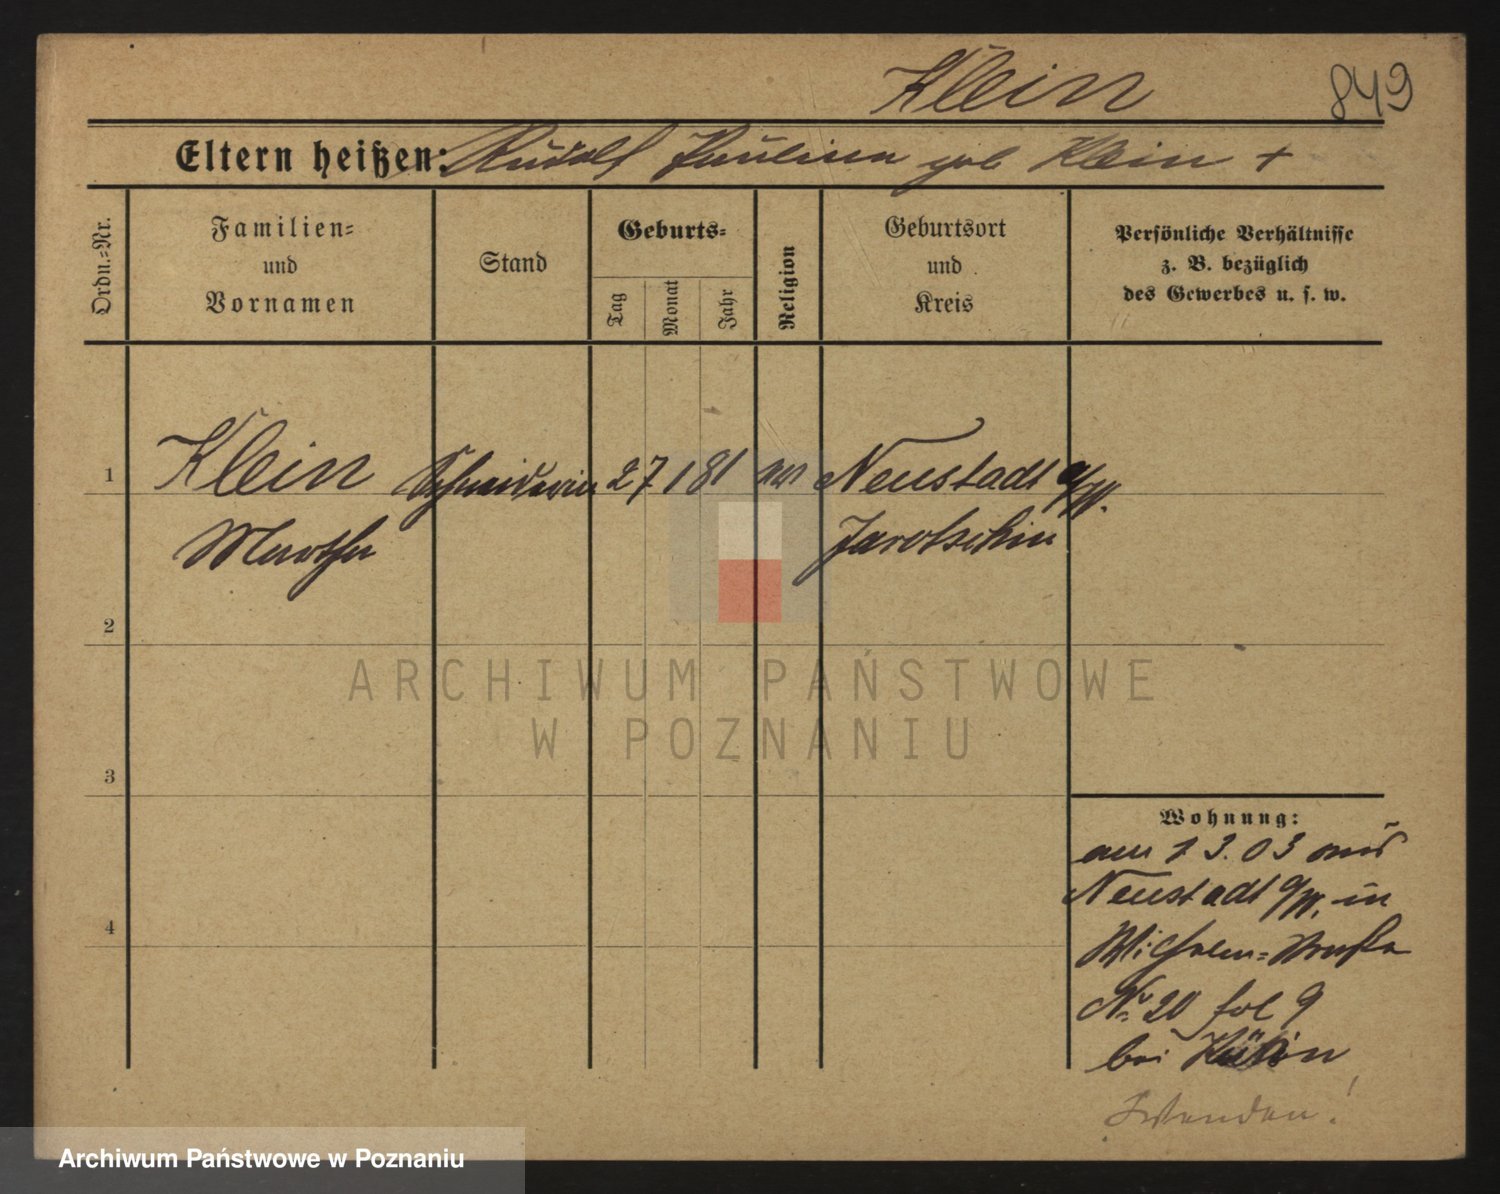 Klein 849
Eltern heißen: Rudolf Paulina geb Klein +
Ordn.-Nr.
Familien-
und
Vornamen
Stand
Geburts-
Tag
Monat
Jahr
Religion
Geburtsort
und
Kreis
Persönliche Verhältnisse
z. B. bezüglich
des Gewerbes u. s. w.
1 Klein Schneiderin 27 1 81 Neustadt a/W.
Martha Jarotschin
2
3
4
ARCHIWUM PAŃSTWOWE
W POZNANIU
Wohnung:
am 1 3. 03 aus
Neustadt a/W. in
Wilhelm-straße
No 20 fol 9
bei
Wenden!
Archiwum Państwowe w Poznaniu